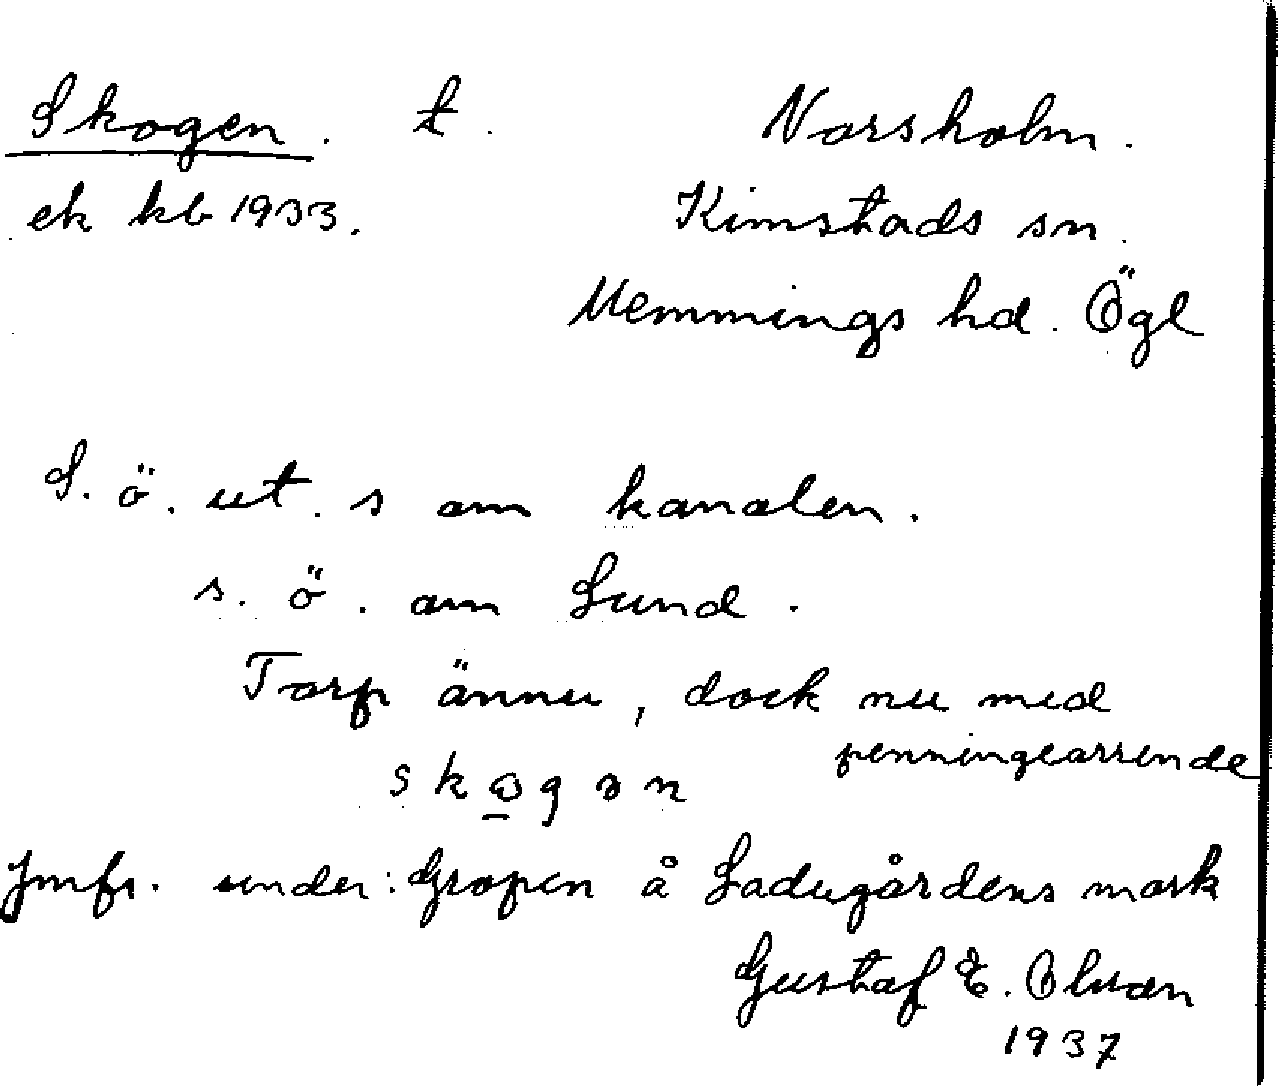 Skogen. t. Norsholm.
ek kb 1933. Kimstads sn.
Memmings hd. Ögl
S. ö. ut. s om kanalen.
s. ö. om Sund.
Torp ännu, dock nu med
penningearrende
skogən
Jmfr. under: Gropen å Ladugårdens mark
Gustaf E. Olson
1937